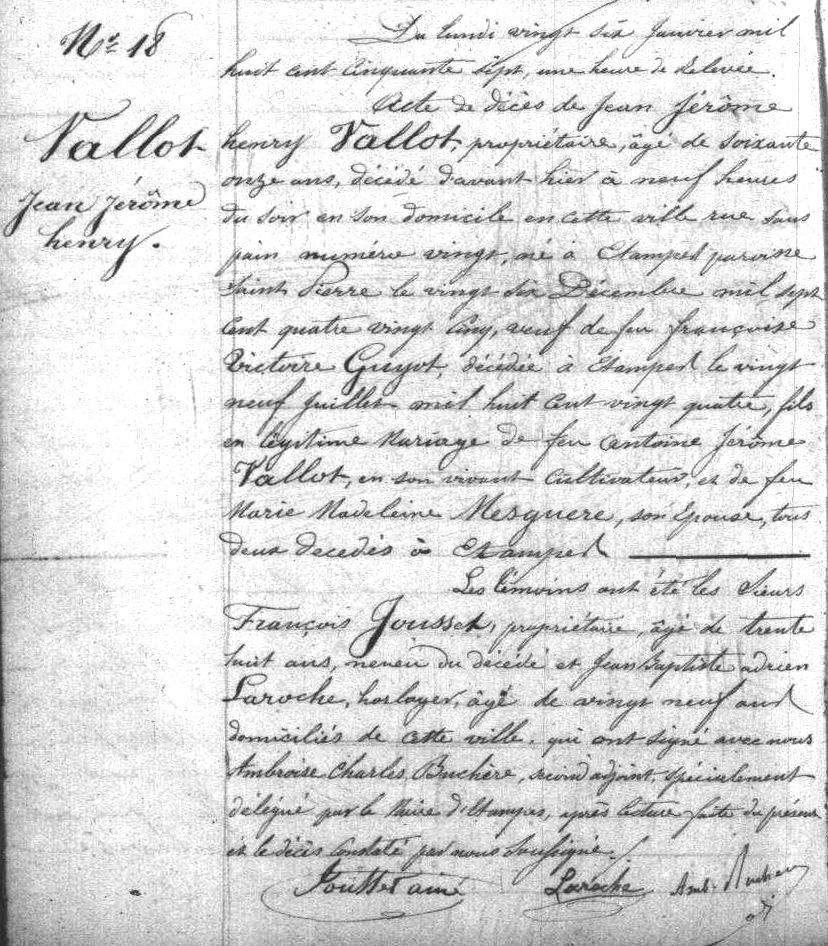 Nº 18
Vallot
Jean Jérôme
henry.
Du lundi vingt six Janvier mil
huit cent cinquante sept, une heure de relevée.
Acte de décès de Jean Jérôme
henry Vallot, propriétaire, âgé de soixante
onze ans, décédé d'avant hier à neuf heures
du soir en son domicile en cette ville rue sans
pain numéro vingt, né à Etampes paroisse
Saint Pierre le vingt six Décembre mil sept
cent quatre vingt cinq, veuf de feu françoise
Victoire Guyot, décédée à Etampes le vingt
neuf Juillet mil huit cent vingt quatre, fils
en légitime Mariage de feu Antoine Jérôme
Vallot, en son vivant Cultivateur, et de feu
Marie Madeleine Mesguere, son Epouse, tous
deux decedés à Etampes
Les témoins ont été les Sieurs
François Jousset, propriétaire, âgé de trente
huit ans, neveu du décédé et Jean Baptiste adrien
Laroche, horloger, âgé de vingt neuf ans
domiciliés de cette ville. qui ont signé avec nous
Ambroise Charles Buchère, second adjoint, spécialement
délégué par le Maire d'Etampes, après lecture faite du présent
et le décès constaté par nous Soussigné.
ainé
Laroche
Amb. Buchere
adj